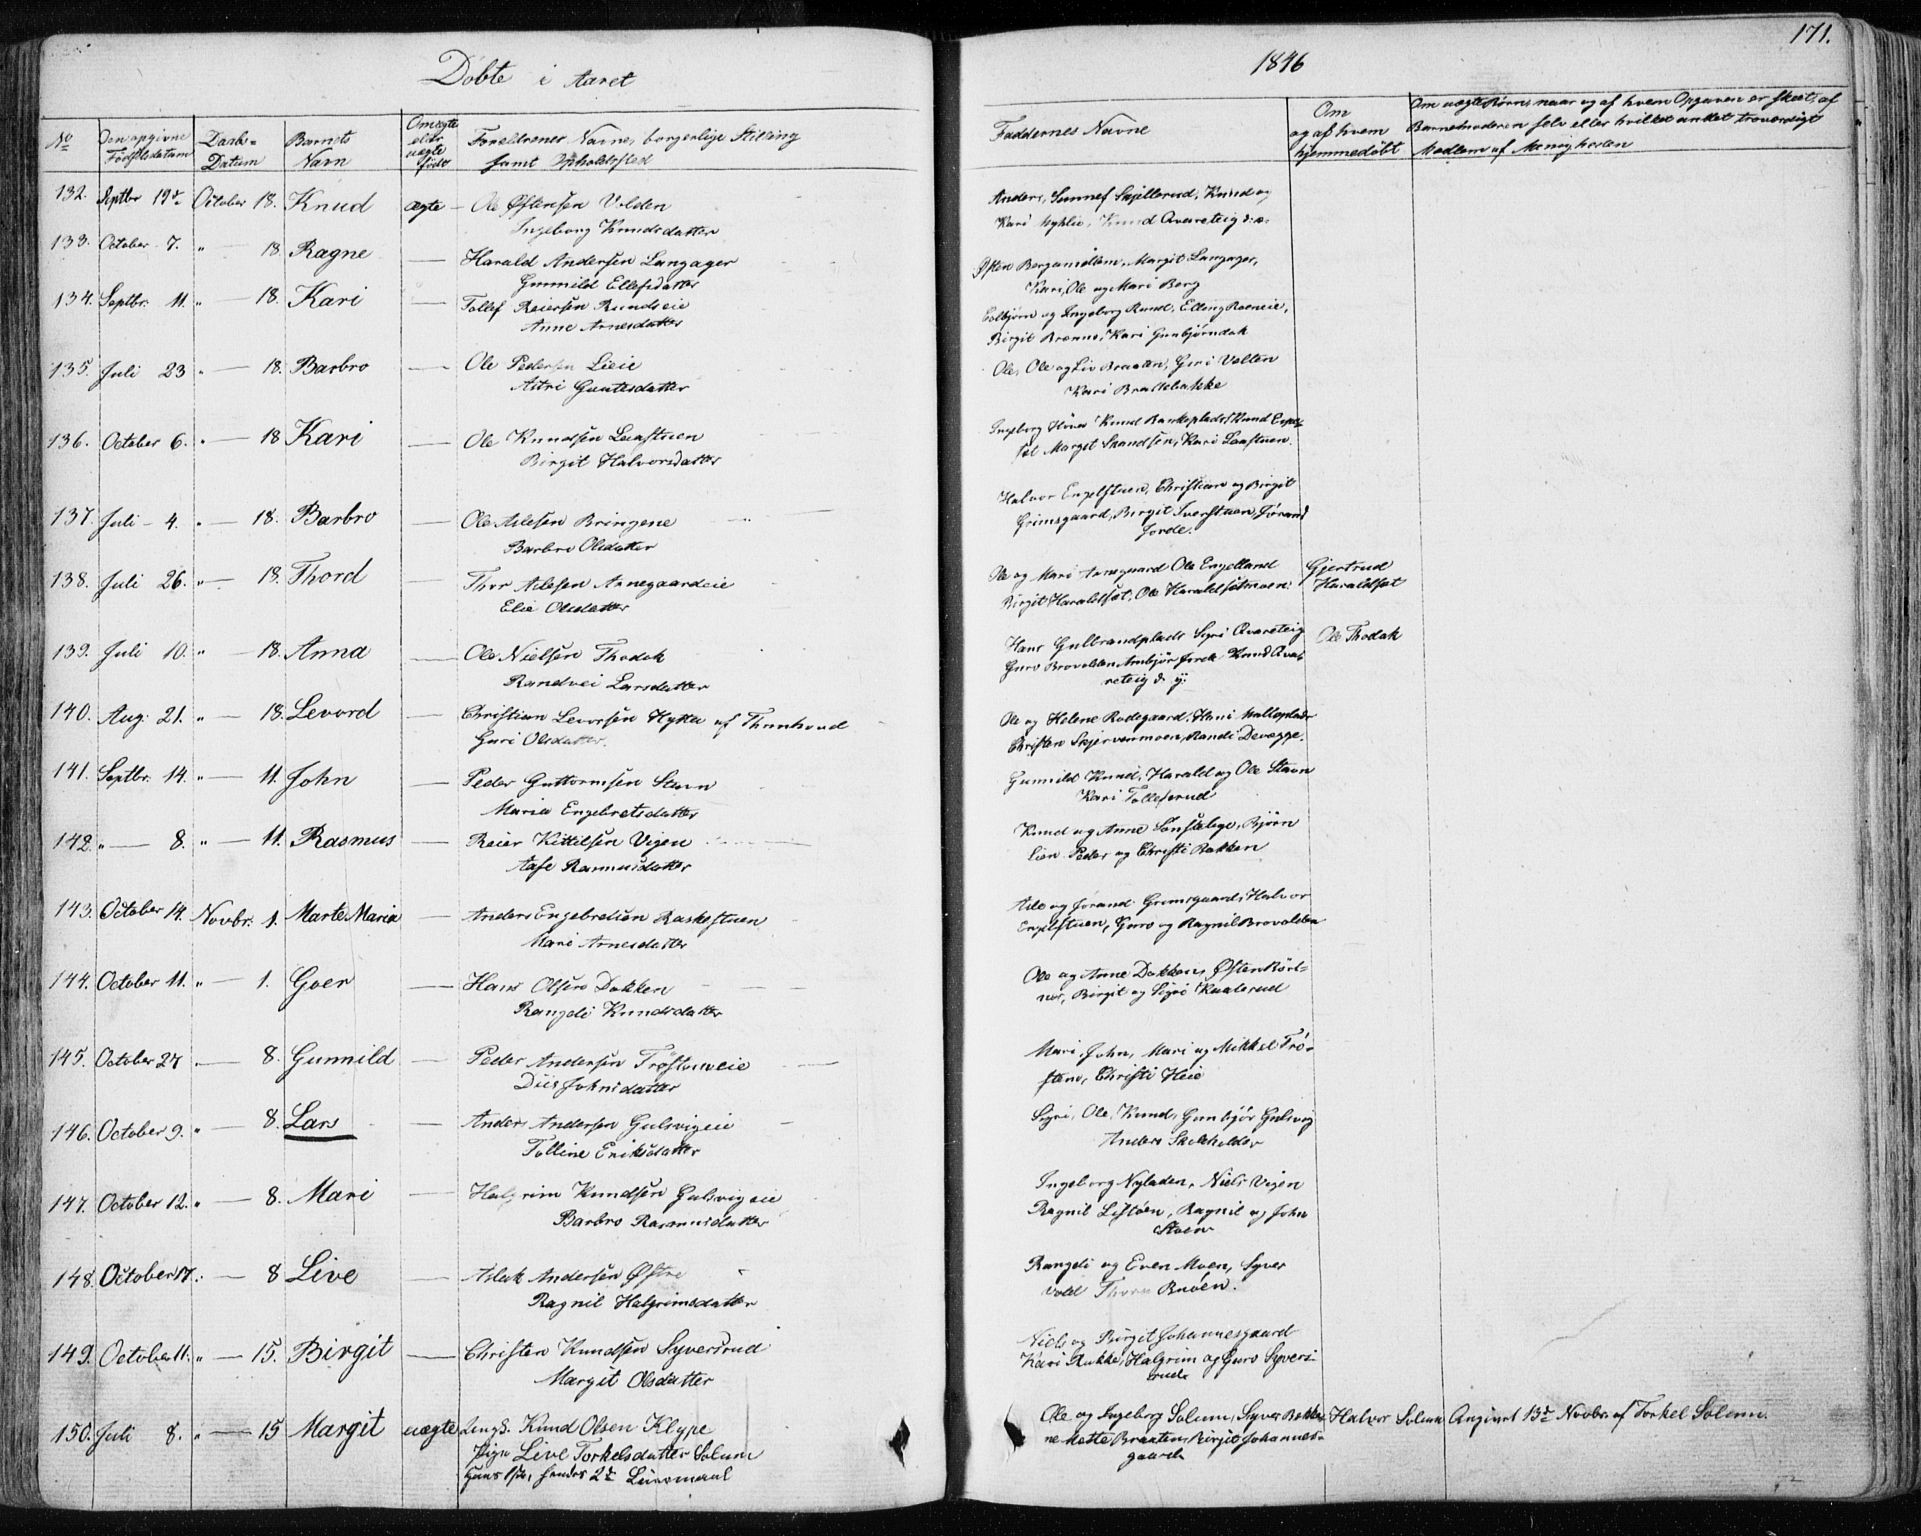 Døbte i Aaret
1846
171.
No
Den opgivne Fødselsdatum
Daabs-Datum
Barnets Navn
Om ægte eller uægte født
Forældrenes Navne, borgerlige Stilling samt Opholdssted
Faddernes Navne
Om og af hvem hjemmedøbt
Om uægte Børn, naar og af hvem Opgaven er skeet, af
Barnemoderen selv eller hvilket andet troværdigt
Medlem af Menigheden
132. Septbr 19de October 18. Knud ægte — Ole Østensen Velden
Ingeborg Knudsdatter
Anders, Sunnef Skjellerud, Knud og
Kari Myhlie, Knud Avereteig d. æ.
133. October 7. " — 18. Ragne — Harald Andersen Langager
Gunnild Ellefsdatter
Østen Bergamellem, Margit Langager,
Kari, Ole og Mari Berg
134. Septbr. 11. " — 18. Kari — Tollef Reiersen Rundseie
Anne Arnesdatter
Eolbjørn og Ingeborg Rund, Elling Roeneie,
Birgit Brenno, Kari Gunbjørndok
135. Juli 23 " — 18. Barbro — Ole Pedersen Lieie
Astri Guutesdatter
Ole, Ole og Liv Braaten, Guri Velten
Kari Bradlebakke
136. October 6. " — 18 Kari — Ole Knudsen Leastuen
Birgit Halvorsdatter
Ingeborg Hovei Knud Bankeplads, Knud Espe-
set Margit Skandsen, Kari Laastuen.
137. Juli — 4. " — 18. Barbro — Ole Aslesen Bringene
Barbro Olsdatter
Halvor Engelstuen, Christian og Birgit
Grimsgaard, Birgit Iverstuen, Jørand
Jorde.
138. Juli 26. " — 18. Thord — Thor Aslesen Arnegaardeie
Elie Olsdatter
Ole og Mari Arnegaard Ole Engelland
Birgit Haraldset, Ole Haraldsetmoen
Gjertrud
Haraldset
139. Juli 10. " — 18. Anna — Ole Nielsen Thodok
Randvei Larsdatter
Hans Gulbrandplads Sigri Avereteig
Guro Brovolden Ambjør Jorde Knud Ave-
reteig d. y.
Ole Thodok
140. Aug. 21. " — 18. Levord — Christian Levorsen Hytta af Thunhovd
Guri Olsdatter.
Ole og Helene Rodegaard, Hans Halloplads
Christen Skjervenmoen, Randi Devegge.
141. Septbr. 14. " — 11. John — Peder Guttormsen Stavn
Maria Engebretsdatter
Gunnild Knud, Harald og Ole Stavn
Kari Tollefsrud
142. " — 8. " — 11. Rasmus — Reier Kittilsen Vigen
Aase Rasmusdatter
Knud og Anne Sønstebye, Bjørn
Lien Peder og Christi Bakken
143. October 14. Novbr. 1. Marte Maria — Anders Engebretsen Raskestuen
Mari Arnesdatter
Asle og Jørand Grimsgaard, Halvor
Engelstuen, Guro og Ragnil Brovolden
144. October 11. " — 1. Goer — Hans Olsen Dokken
Rangdi Knudsdatter
Ole og Anne Dokken, Østen Rørt-
ner, Birgit og Sigri Kaalsrud
145. October 27 — 8. Gunnild — Peder Andersen Trøstemeie
Diis Johnsdatter
Mari, John, Mari og Mikkel Trø-
stem, Christi Heie
146. October 9. " — 8. Lars Anders Andersen Gulsvigeie
Tolline Eriksdatter
Sigri, Ole, Knud, Gunbjør Gulsvig
Anders Skoleholder
147. October 12. " — 8. Mari — Halgrim Knudsen Gulsvigeie
Barbro Rasmusdatter
Ingeborg Nyladen, Niels Vigen
Ragnil Listøen, Ragnil og John
Støen
148. October 17. — 8 Live — Aslak Andersen Østre
Ragnil Halgrimsdatter
Rangdi og Even Moen, Syver
Vold Thore Buøen.
149. October 11. " — 15. Birgit — Christen Knudsen Syversrud
Margit Olsdatter
Niels og Birgit Johannesgaard
Kari Rukke, Halgrim og Guro Syvers-
rud
150. Juli 8. " — 15 Margit uægte Ungk. Knud Olsen Klype
Pige Live Torkelsdatter Solum
Hans 1ste, hendes 2de Leiermaal
Ole og Ingeborg Solum, Syver Bakke
ne Mette Braaten, Birgit Johannes-
gaard
Halvor Solum
Angivet 13de Novbr. af Torkel Solum.